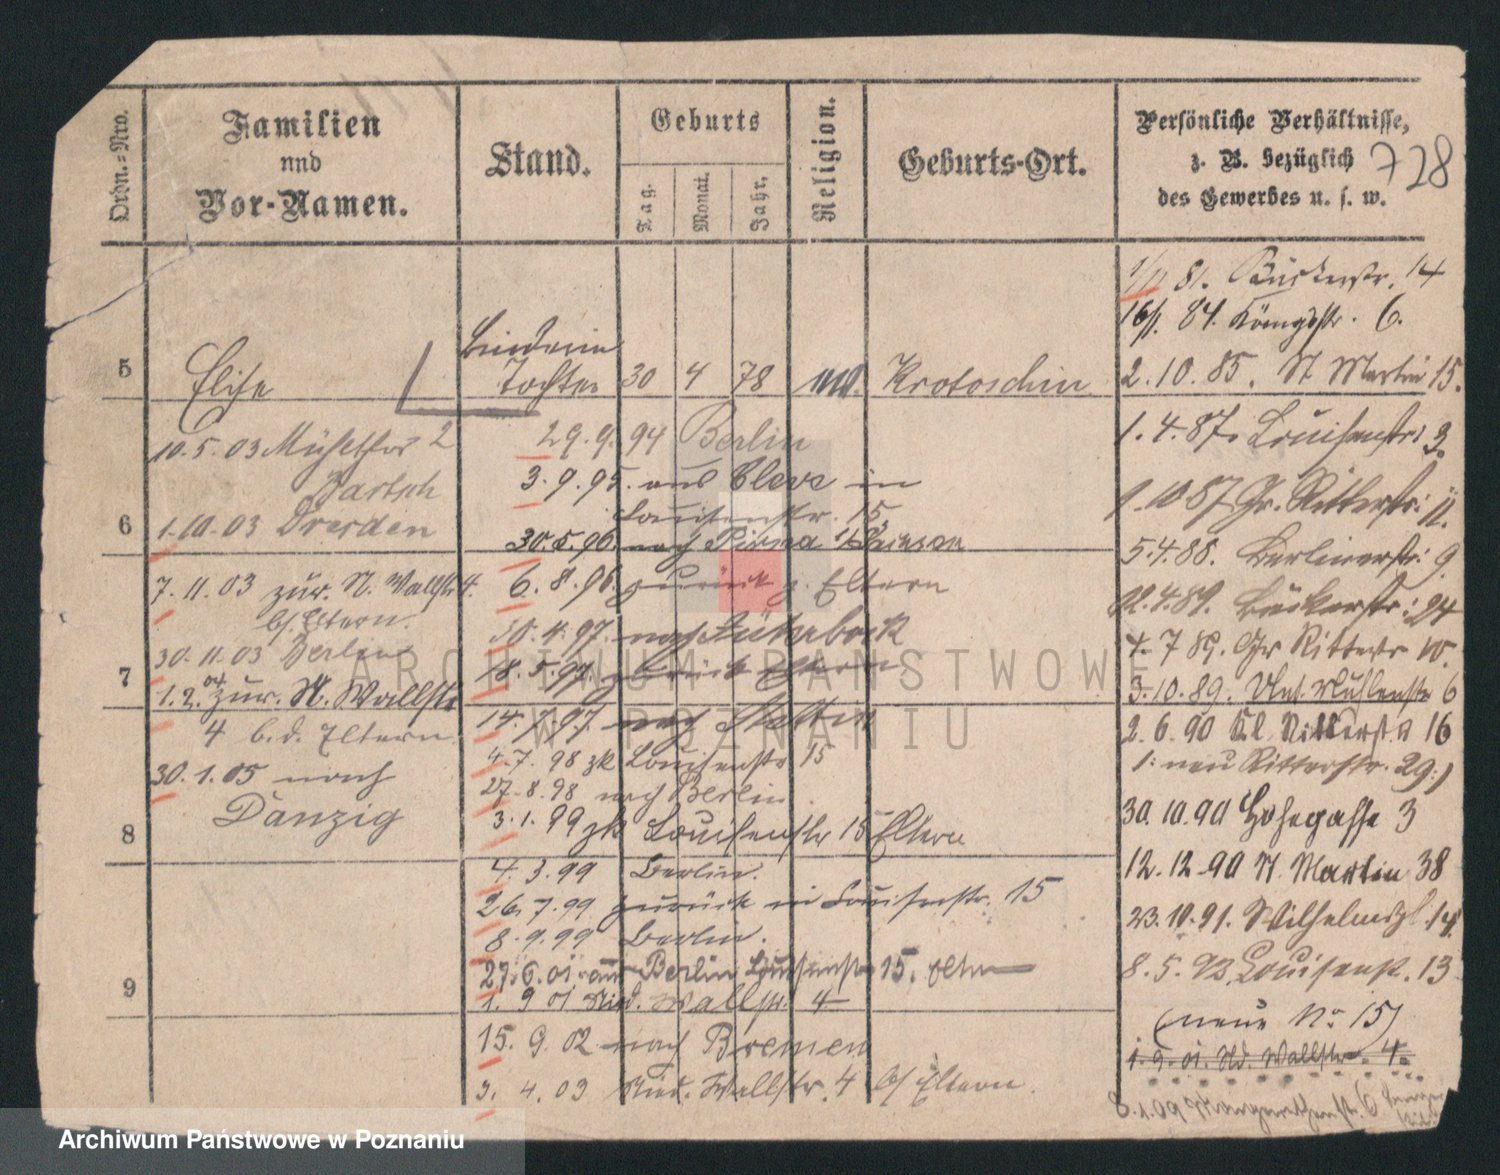 728
Ordn.=Nro.
Familien
und
Vor-Namen.
Stand.
Geburts
Tag.
Monat.
Jahr.
Religion.
Geburts-Ort.
Persönliche Verhältnisse,
z. B. bezüglich
des Gewerbes u. s. w.
5
Elise
Tochter
30 4 78
Krotoschin
10.5.03
2
Bartsch
6
1.10.03 Dresden
7.11.03 zur. N. Wallstr 4.
b/ Eltern.
30.11.03 Berlin
7
1.2.04 zur. N. Wallstr
4 b.d. Eltern
30.1.05 nach
Danzig
8
9
29.9.94 Berlin
3.9.95. aus Cleve in
Louisenstr. 15,
30.5.96. nach Pirna
6.8.96. zurück z. Eltern
30.4.97. nach Jüterbock
18.5.97 zurück Eltern
14.7.97. nach Stettin
4.7.98 zk Louisenstr 15
27.8.98 nach Berlin
3.1.99 zk Louisenstr 15 Eltern
4.3.99 Berlin.
26.7.99 zurück in Louisenstr. 15
8.9.99 Berlin.
27.6.01. aus Berlin Louisenstr 15. Eltern
1. 9 01 Nied. Wallstr. 4
15. 9. 02 nach Bremen
3. 4. 03 Nied. Wallstr. 4 b/ Eltern.
1/11 81. 14
16/1. 84. Königsstr. 6.
2.10.85. St Martin 15.
1.4.87. Louisenstr: 3.
1.10 87 Gr. Ritterstr: 11.
5.4.88. Berlinerstr: 9
4.89. Bäckerstr: 24
4.7 89. Gr Ritterstr 10.
3.10.89. Unt. Mühlenstr 6
2.6.90 Kl. Ritterstr 16
1: neu Ritterstr. 29:)
30.10.90 Hohegasse 3
12.12.90 St. Martin 38
23.10.91. Wilhelmspl. 14
8.5.93. Louisenstr. 13
(neue No 15)
1.9.01. Nd. Wallstr. 4.
8.1.09
ARCHIWUM PAŃSTWOWE
W POZNANIU
Archiwum Państwowe w Poznaniu